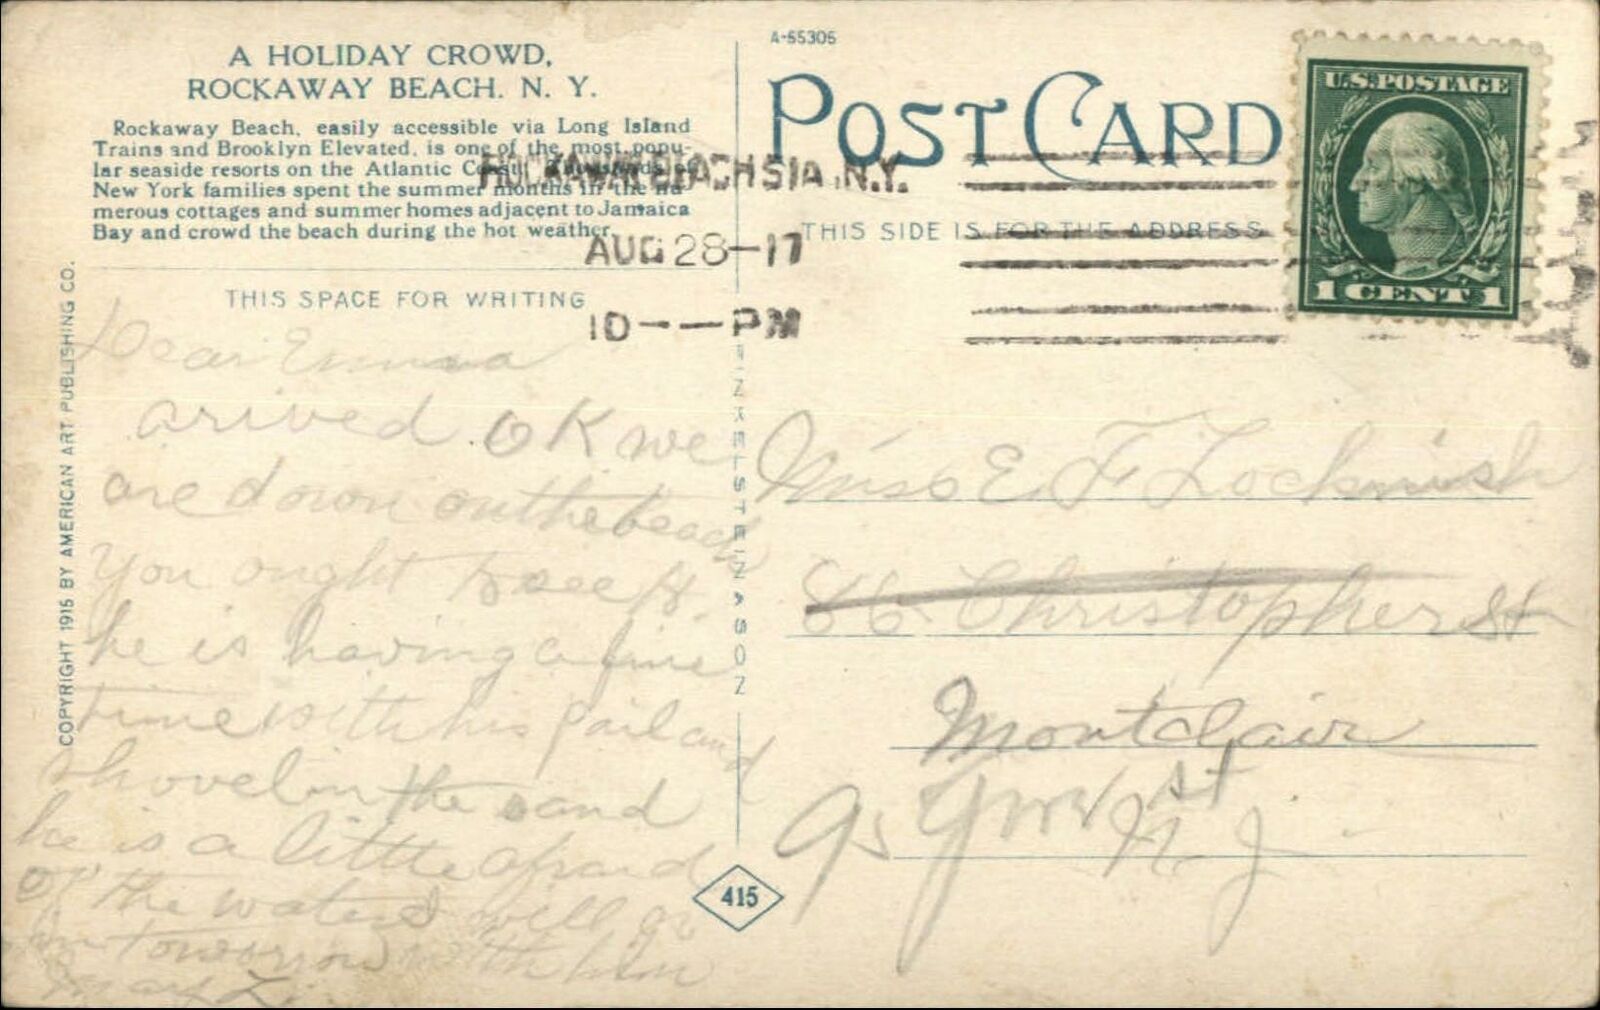 A HOLIDAY CROWD,
ROCKAWAY BEACH. N. Y.
Rockaway Beach, easily accessible via Long Island
Trains and Brooklyn Elevated, is one of the most popu-
lar seaside resorts on the Atlantic Coast. Thousands of
New York families spent the summer months in the nu-
merous cottages and summer homes adjacent to Jamaica
Bay and crowd the beach during the hot weather.
THIS SPACE FOR WRITING
Dear Emma
arived OK we
are down on the beach
you ought to see H.
he is having a fine
time with his pail and
shovel in the sand
he is a little afraid
of the water will go
in tomorrow with him
Mary L.
COPYRIGHT 1915 BY AMERICAN ART PUBLISHING CO.
FINKELSTEIN & SON
415
A-55305
POST CARD
THIS SIDE IS FOR THE ADDRESS
ROCKAWAY BEACH STA. N.Y.
AUG 28-17
10 — PM
U.S. POSTAGE
1 CENT 1
Miss E F
Christopher St
Montclair
St
N. J.